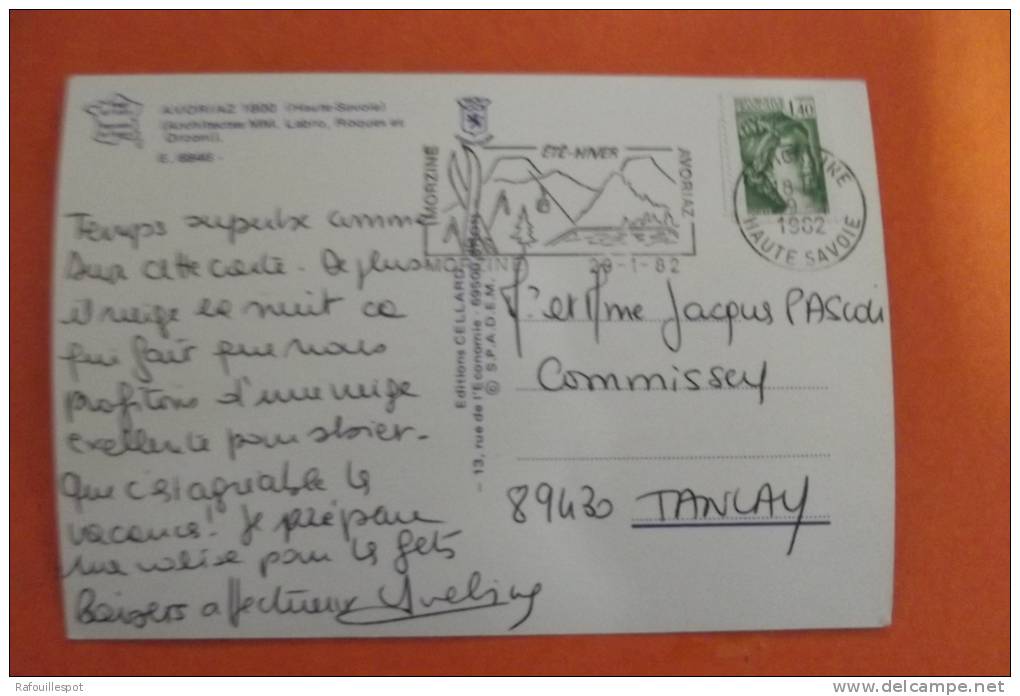 AVORIAZ 1800 (Haute-Savoie)
(Architectes MM. Labro, Roques et
Orzoni).
E. 6846 -
Temps superbe comme
sur cette carte. De plus
il neige la nuit ce
qui fait que nous
profitons d'une neige
excellente pour skier -
Que c'est agréable les
vacances! Je prépare
ma valise pour les Gets
Baisers affectueux Yveline
Editions CELLARD
- 13, rue de l'Economie - 69500 BRON
© S.P.A.D.E.M.
MORZINE
ÉTÉ-HIVER
AVORIAZ
MORZINE 29-1-82
1,40
18 H
1982
HAUTE SAVOIE
Mr et Mme Jacques PASCOLI
Commissey
89430 TANLAY
Rafouillespot
www.delcampe.net